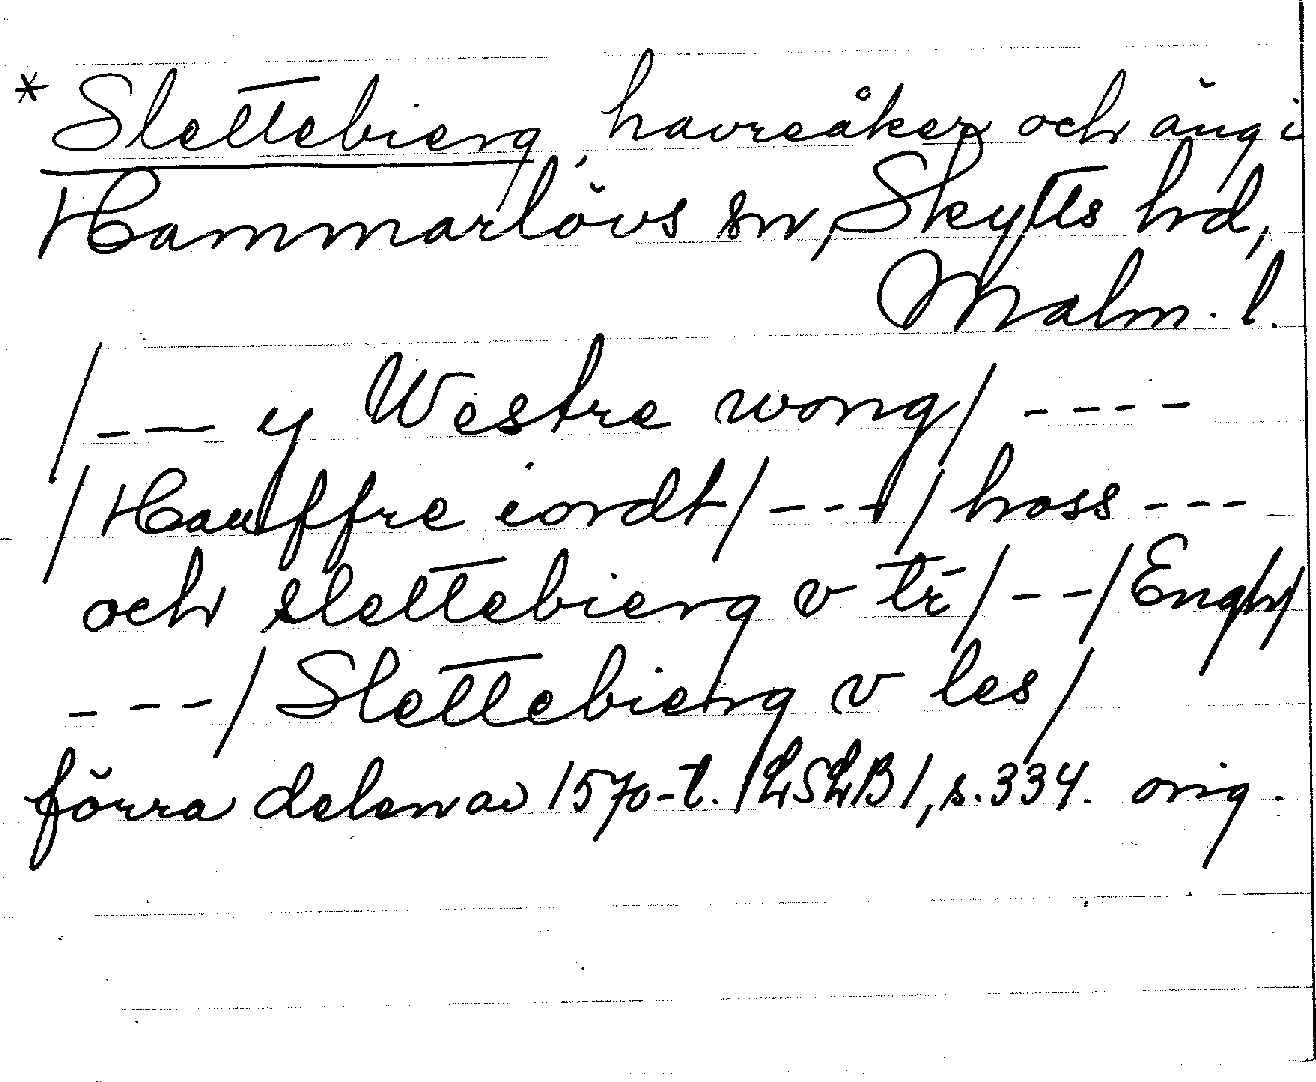 * Slettebierg, havreåker och äng i
Hammarlövs sn, Skytts hd,
Malm. l.
/--- y Westre wong/ ----
/Hauffre iordt/ ---/ /hoss ---
och slettebierg v trē/ --/Engh/
---/ Slettebierg v les/
förra delen av 1570-t. /LSLB 1, s. 334. orig.